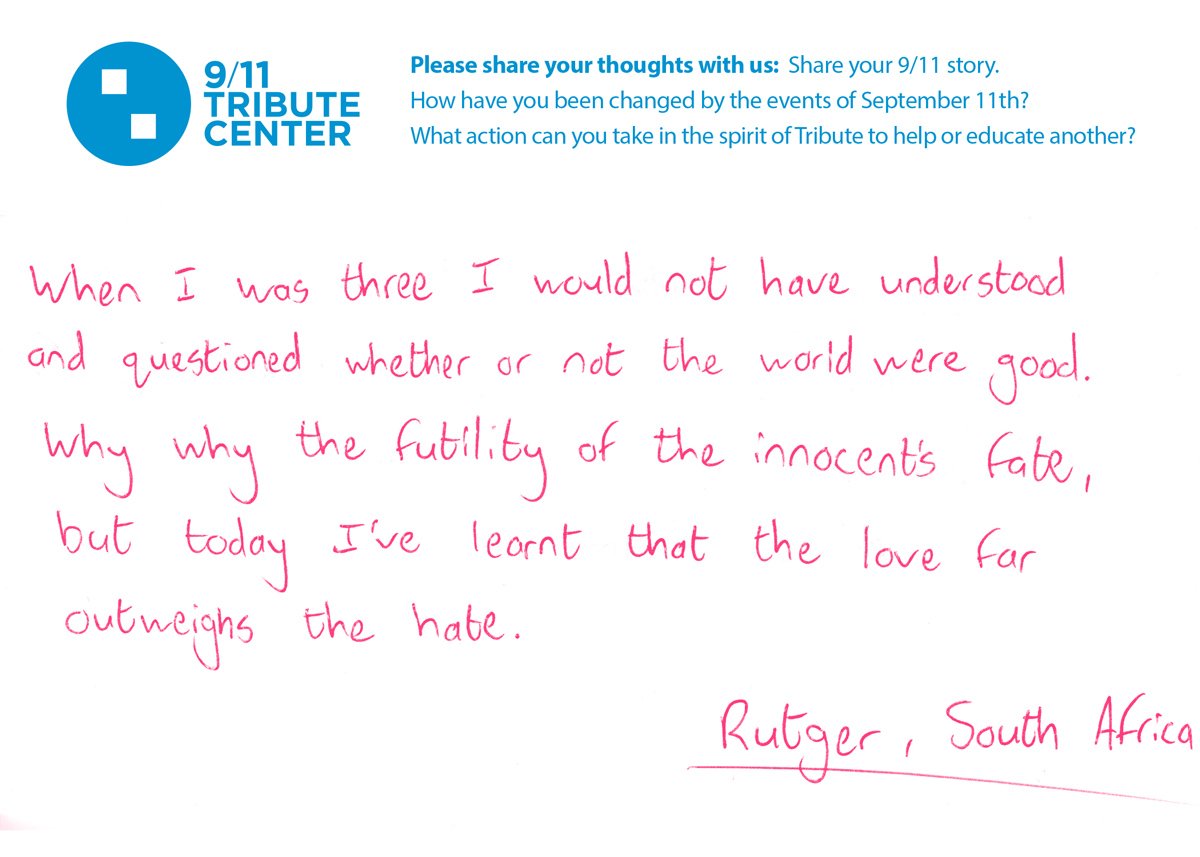 9/11
TRIBUTE
CENTER
Please share your thoughts with us: Share your 9/11 story.
How have you been changed by the events of September 11th?
What action can you take in the spirit of Tribute to help or educate another?
When I was three I would not have understood
and questioned whether or not the world were good.
Why why the futility of the innocent's fate,
but today I've learnt that the love far
outweighs the hate.
Rutger, South Africa